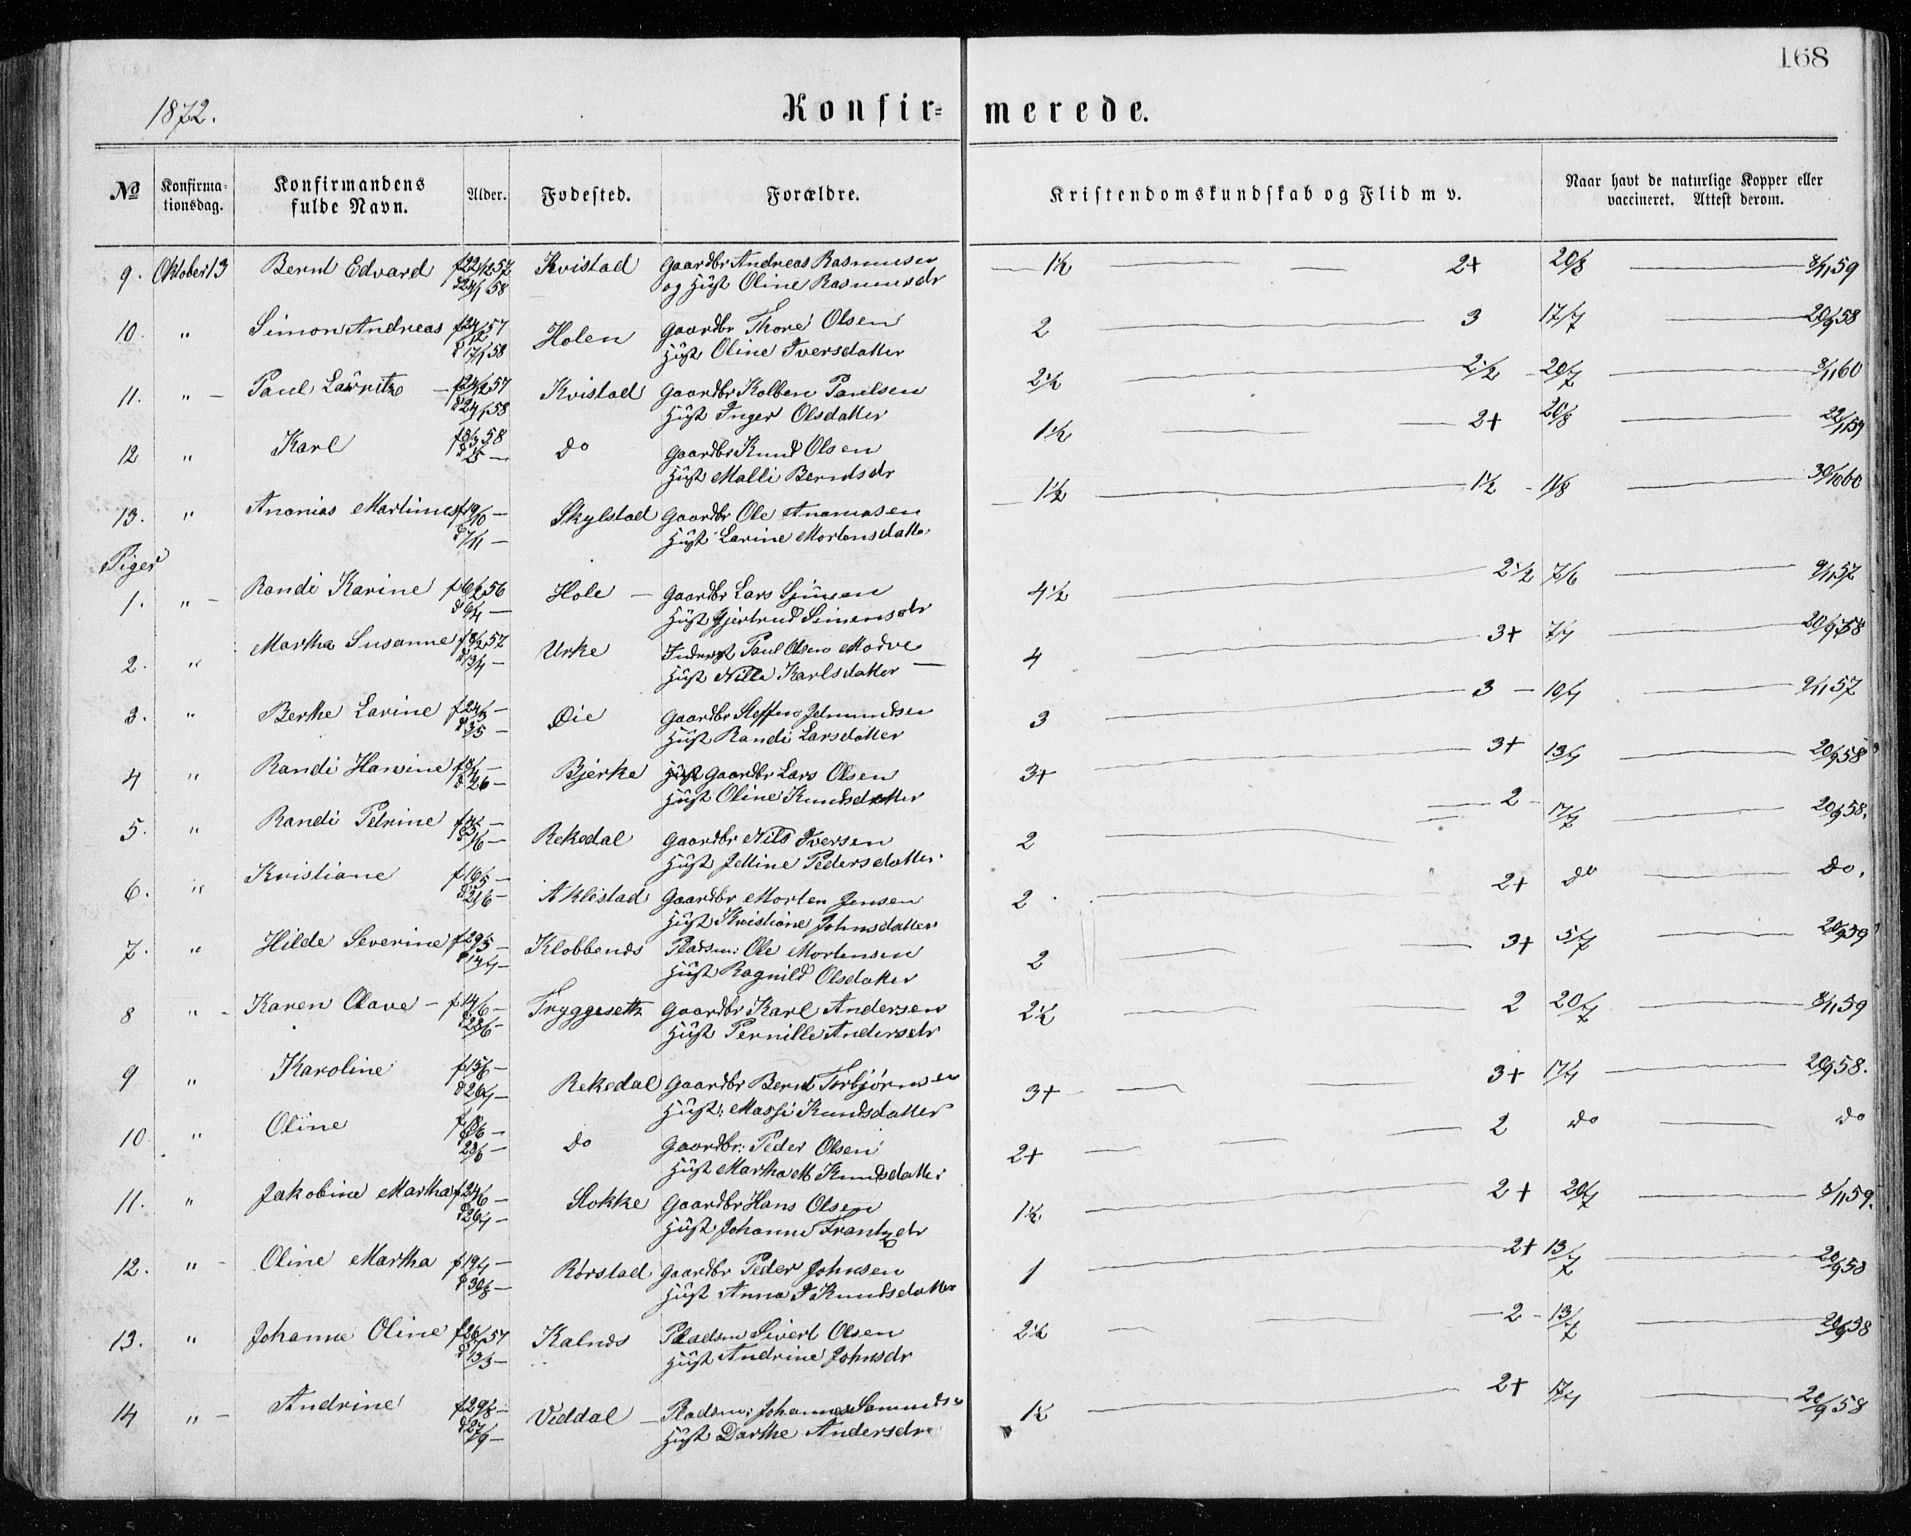 168
1872.
Konfir= merede.
No Konfirma- tionsdag. Konfirmandens fulde Navn. Alder. Fødested. Forældre. Kristendomskundskab og Flid m v. Naar havt de naturlige Kopper eller vaccineret. Attest derom.
9. Oktober 13 Bernt Edvard f 22/12 57 Kvistad Gaardbr Andreas Rasmusen 1½ 2+ 20/8 8/11 59
d 24/1 58 og Hust Oline Rasmusdr
10. " Simon Andreas f 24/12 57 Holen Gaardbr Thore Olsen 2 3 17/7 20/9 58
d 17/1 58 Hust Oline Iversdatter
11. " Paul Lauritz f 24/12 57 Kvistad Gaardbr Kolben Paulsen 2½ 2½ 20/7 8/11 60
d 24/1 58 Hust Inger Olsdatter
12 " Karl 58 do Gaardbr Knud Olsen 1½ 2+ 20/8 22/11 59
Hust Malli Berntsdr
13. " Ananias Martinus f 19/10 Skylstad Gaardbr Ole Ananiasen 1½ 1½ 11/8 30/10 60
d 7/11 Hust Larine Mortensdatter
Piger
1. " Randi Karine f 6/12 56 Hole Gaardbr Lars 4½ 2½ 7/6 9/11 57
d 9/4 Hust Gjertrud Simensdr
2. " Martha Susanne f 8/2 57 Urke Inderst Paul Olsen Modve 4 3+ 7/7 20/9 58
d 13/4 Hust Nille Karlsdatter
3. " Berthe Larine f 24/3 Øie Gaardbr Steffen Jetmundsen 3 3 10/7 9/11 57
d 3/5 Hust Randi Larsdatter
4 " Randi Hansine Bjerke Gaardbr Lars Olsen 3+ 3+ 13/7 20/9 58
Hust Oline Knudsdatter
5. " Randi Petrine Rekedal Gaardbr Nils Iversen 2 2 17/7 20/9 58.
Hust Jettine Pedersdatter
6. " Kristiane f 16/5 Aklestad Gaardbr Morten Jensen 2 2+ do do.
d 21/6 Hust Kristiane Johnsdatter
7. " Hilde Severine f 29/5 Klobbenes Pladsm: Ole Mortensen 2 3+ 5/7 20/9 59
d 14/7 Hust Ragnild Olsdatter
8 " Karen Olave f 14/6 Tryggesett Gaardbr Karl Andersen 2½ 2 20/7 8/11 59
d 28/6 Hust Pernille Andersdr
9 " Karoline f 15/6 Rekedal Gaardbr Bernt Torbjørnsen 3+ 3+ 17/7 20/9 58.
d 26/7 Hust: Massi Knudsdatter
10. " Oline do Gaardbr: Peder Olsen 2+ 2 do do
28/6 Hust Martha M Knudsdatter
11. " Jakobine Martha f 24/6 Stokke Gaardbr Hans Olsen 1½ 2+ 20/7 8/11 59.
d 26/7 Hust Johanne Frantzdr
12. " Oline Martha f 19/7 Rørstad Gaardbr Peder Johnsen 1 2+ 13/7 20/9 58
d 30/8 Hust Anna I Knudsdatter
13. " Johanne Oline 57 Kalnæs Pladsm Sivert Olsen 2½ 2 13/7 20/9 58
d 13/3 Hust Andrine Johnsdr
14 " Andrine f 29/8 Viddal Pladsm: Johannes 1½ 2+ 17/7 20/9 58
d 27/9 Hust Dorthe Andersdr